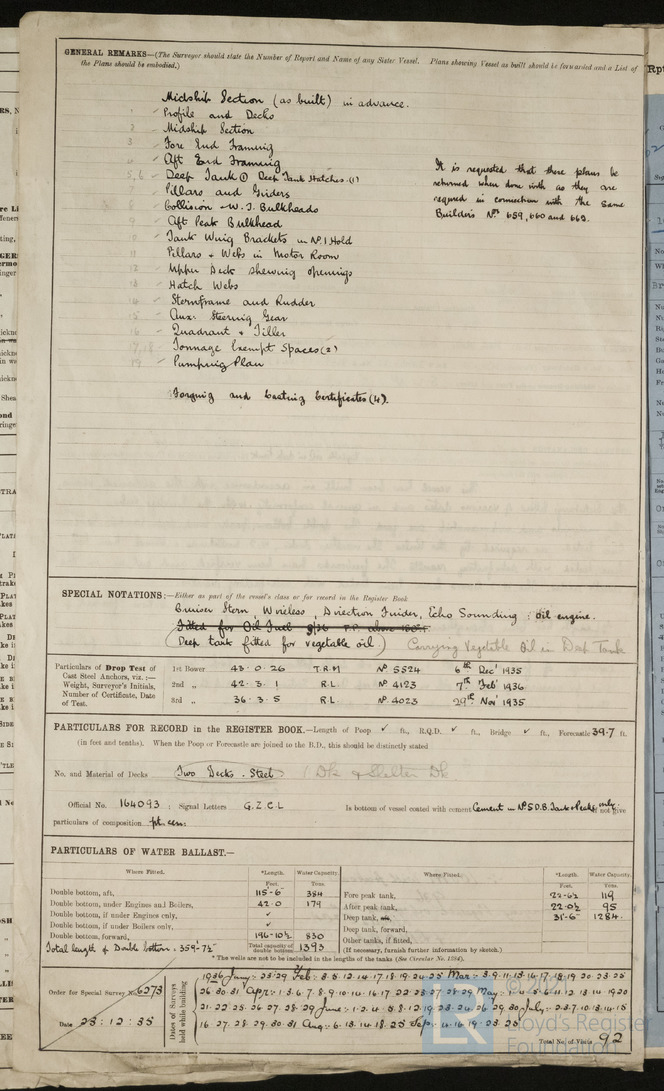 GENERAL REMARKS—(The Surveyor should state the Number of Report and Name of any Sister Vessel. Plans showing Vessel as built should be forwarded and a List of
the Plans should be embodied.)
Midship Section (as built) in advance.
1 Profile and Decks
2 Midship Section
3 Fore End Framing
4 Aft End Framing
5,6 Deep Tank ① Deep Tank Hatches (1)
Pillars and Girders
8 Collision & W.T. Bulkheads
9 Aft Peak Bulkhead
10 Tank Wing Brackets in Nº 1 Hold
11 Pillars & Webs in Motor Room
Upper Deck showing openings
Hatch Webs
Sternframe and Rudder
15 Aux: Steering Gear
16 Quadrant & Tiller
17,18 Tonnage Exempt Spaces (2)
19 Pumping Plan
Forging and Casting Certificates (4).
It is requested that these plans be
returned when done with as they are
required in connection with the same
Builders Nºs 659, 660 and 662.
SPECIAL NOTATIONS:—Either as part of the vessel's class or for record in the Register Book
Cruiser Stern, Wireless, Direction Finder, Echo Sounding : oil engine.
Fitted for Oil Fuel 9/36 F.P. above 150°F.
(Deep tank fitted for vegetable oil) Carrying Vegetable Oil in Deep Tank
Particulars of Drop Test of
Cast Steel Anchors, viz.:—
Weight, Surveyor's Initials,
Number of Certificate, Date
of Test.
1st Bower 43 . 0 . 26 T.R.M Nº 5524 6th Dec' 1935
2nd „ 42 . 3 . 1 R.L. Nº 4123 7th Feb' 1936
3rd „ 36 . 3 . 5 R.L. Nº 4023 29th Nov' 1935
PARTICULARS FOR RECORD in the REGISTER BOOK.—Length of Poop ✓ ft., R.Q.D. ✓ ft., Bridge ✓ ft., Forecastle 39.7 ft.
(in feet and tenths). When the Poop or Forecastle are joined to the B.D., this should be distinctly stated
No. and Material of Decks Two Decks . Steel 1 Dk & Shelter Dk
Official No. 164093 ; Signal Letters G.Z.C.L Is bottom of vessel coated with cement Cement in Nº 5 D.B. Tank & Peaks only. if not give
particulars of composition pt. cem:
PARTICULARS OF WATER BALLAST.—
Where Fitted. *Length. Water Capacity. Where Fitted. *Length. Water Capacity.
Feet. Tons. Feet. Tons.
Double bottom, aft, 115-6 384 Fore peak tank, 22-6½ 119
Double bottom, under Engines and Boilers, 42.0 179 After peak tank, 22.0½ 95
Double bottom, if under Engines only, ✓ Deep tank, aft, 31-6 1284
Double bottom, if under Boilers only, ✓ Deep tank, forward,
Double bottom, forward, 196-10½ 830 Other tanks, if fitted,
Total length of Double bottom : 359'-7½" Total capacity of double bottom 1393 (If necessary, furnish further information by sketch.)
* The wells are not to be included in the lengths of the tanks (See Circular No. 1284).
Order for Special Survey No. 6273
Date 23 : 12 : 35
Dates of Surveys held while building
1936 Jany: 23.29 Feb: 3.5.12.14.17.18.19.20.25 Mar: 3.9.11.13.16.17.18.19.20.23.25
26.30.31 Apr: 1.3.6.7.8.9.10.14.16.17.22.23.27.28.29 May: 1.4.5.6.11.12.13.14.19.20
21.22.25.26.27.28.29 June: 1.2.4.5.8.12.19.23.24.26.29.30 July: 2.3.7.10.13.14.15
16.27.28.29.30.31 Aug: 6.13.14.18.25 Sep: 4.16.19.23.25
Total No. of Visits 92
© 2021
Lloyd's Register
Foundation